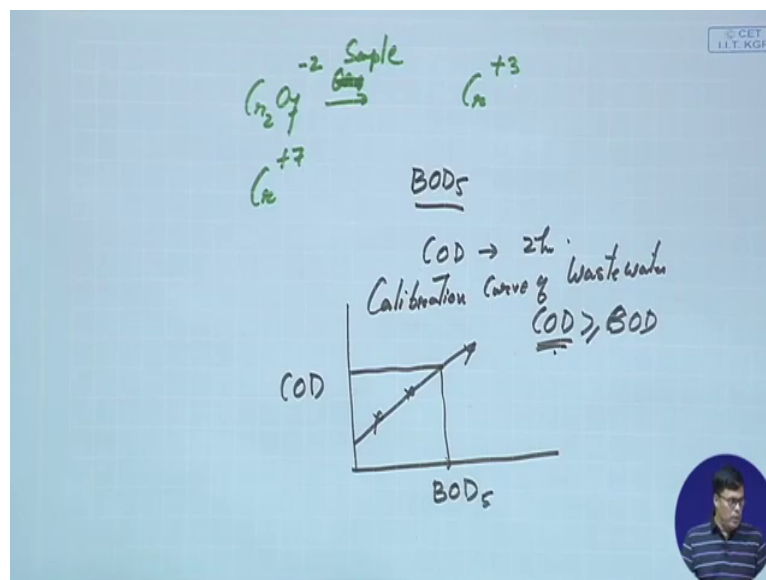 © CET
I.I.T. KGP
Cr₂O₇⁻² Sample → Cr⁺³
Cr⁺⁷
BOD₅
COD → 2h.
Calibration Curve of Wastewater
COD ≥ BOD
COD
BOD₅